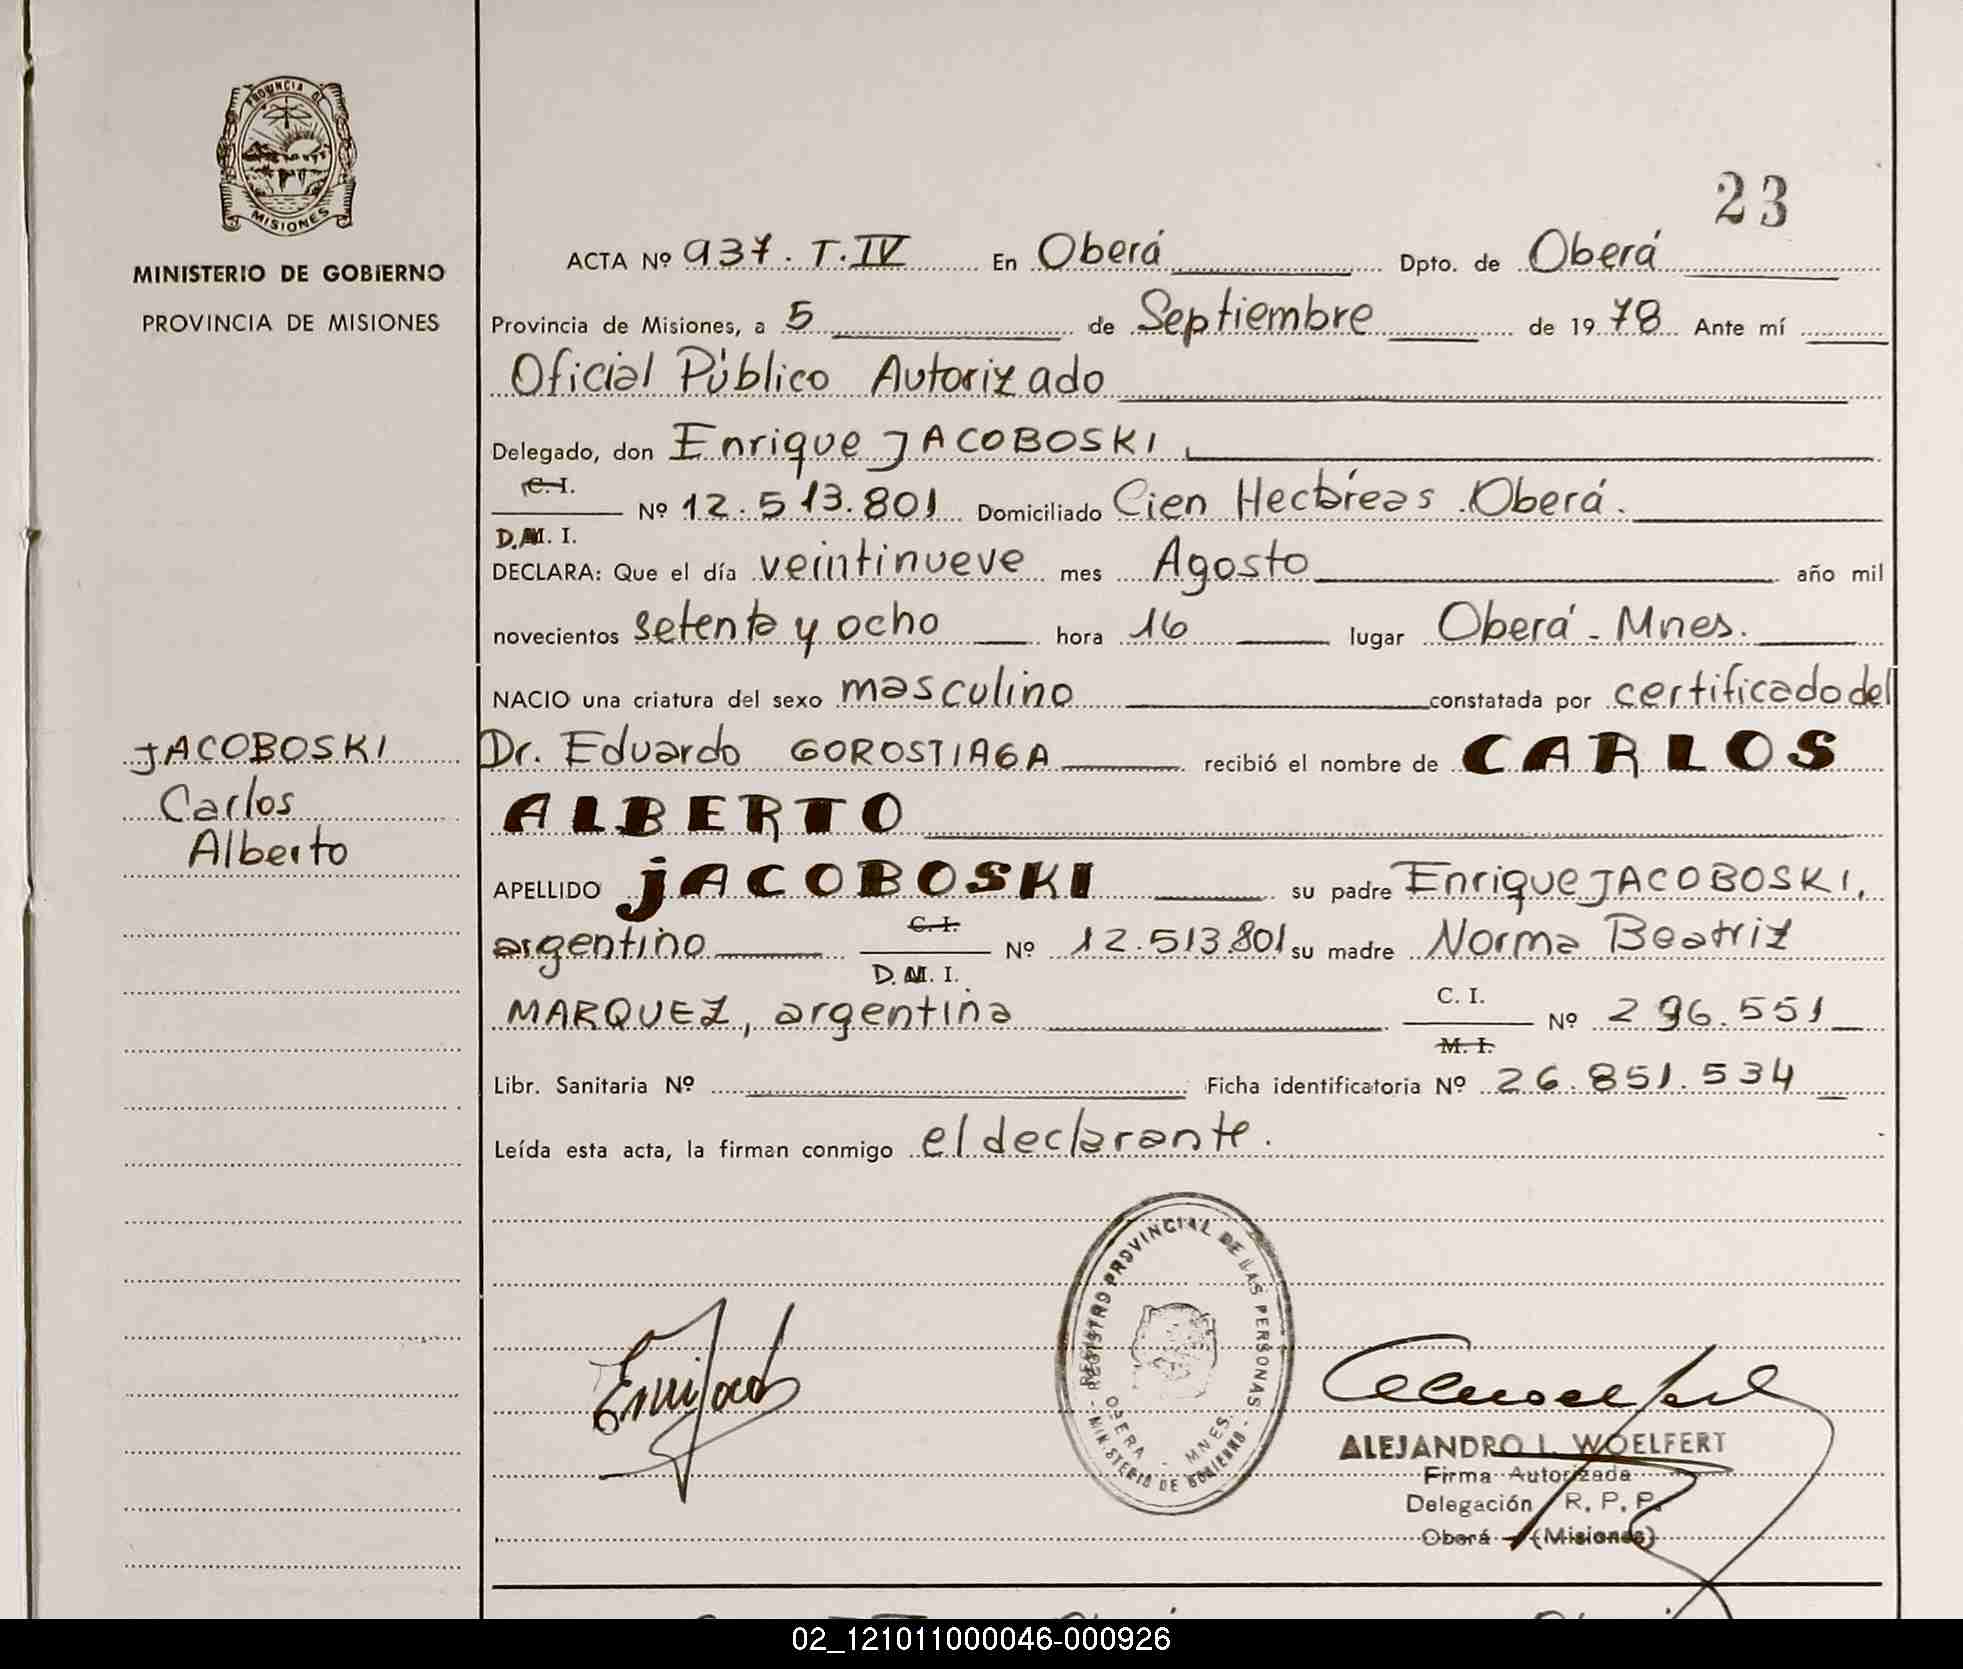 PROVINCIA DE
MISIONES
MINISTERIO DE GOBIERNO
PROVINCIA DE MISIONES
JACOBOSKI
Carlos
Alberto
23
ACTA Nº 937. T. IV En Oberá Dpto. de Oberá
Provincia de Misiones, a 5 de Septiembre de 19 78 Ante mí
Oficial Público Autorizado
Delegado, don Enrique JACOBOSKI
C. I.
Nº 12.513.801 Domiciliado Cien Hectáreas Oberá.
D.M. I.
DECLARA: Que el día veintinueve mes Agosto año mil
novecientos setenta y ocho hora 16 lugar Oberá - Mnes.
NACIO una criatura del sexo masculino constatada por certificado del
Dr. Eduardo GOROSTIAGA recibió el nombre de CARLOS
ALBERTO
APELLIDO JACOBOSKI su padre Enrique JACOBOSKI,
C. I.
argentino Nº 12.513.801 su madre Norma Beatriz
D. M. I.
MARQUEZ, argentina C. I. Nº 296.551
M. I.
Libr. Sanitaria Nº Ficha identificatoria Nº 26.851.534
Leída esta acta, la firman conmigo el declarante.
REGISTRO PROVINCIAL DE LAS PERSONAS
OBERA - MNES.
- MINISTERIO DE GOBIERNO -
ALEJANDRO L. WOELFERT
Firma Autorizada
Delegación R. P. P.
Oberá (Misiones)
02_121011000046-000926